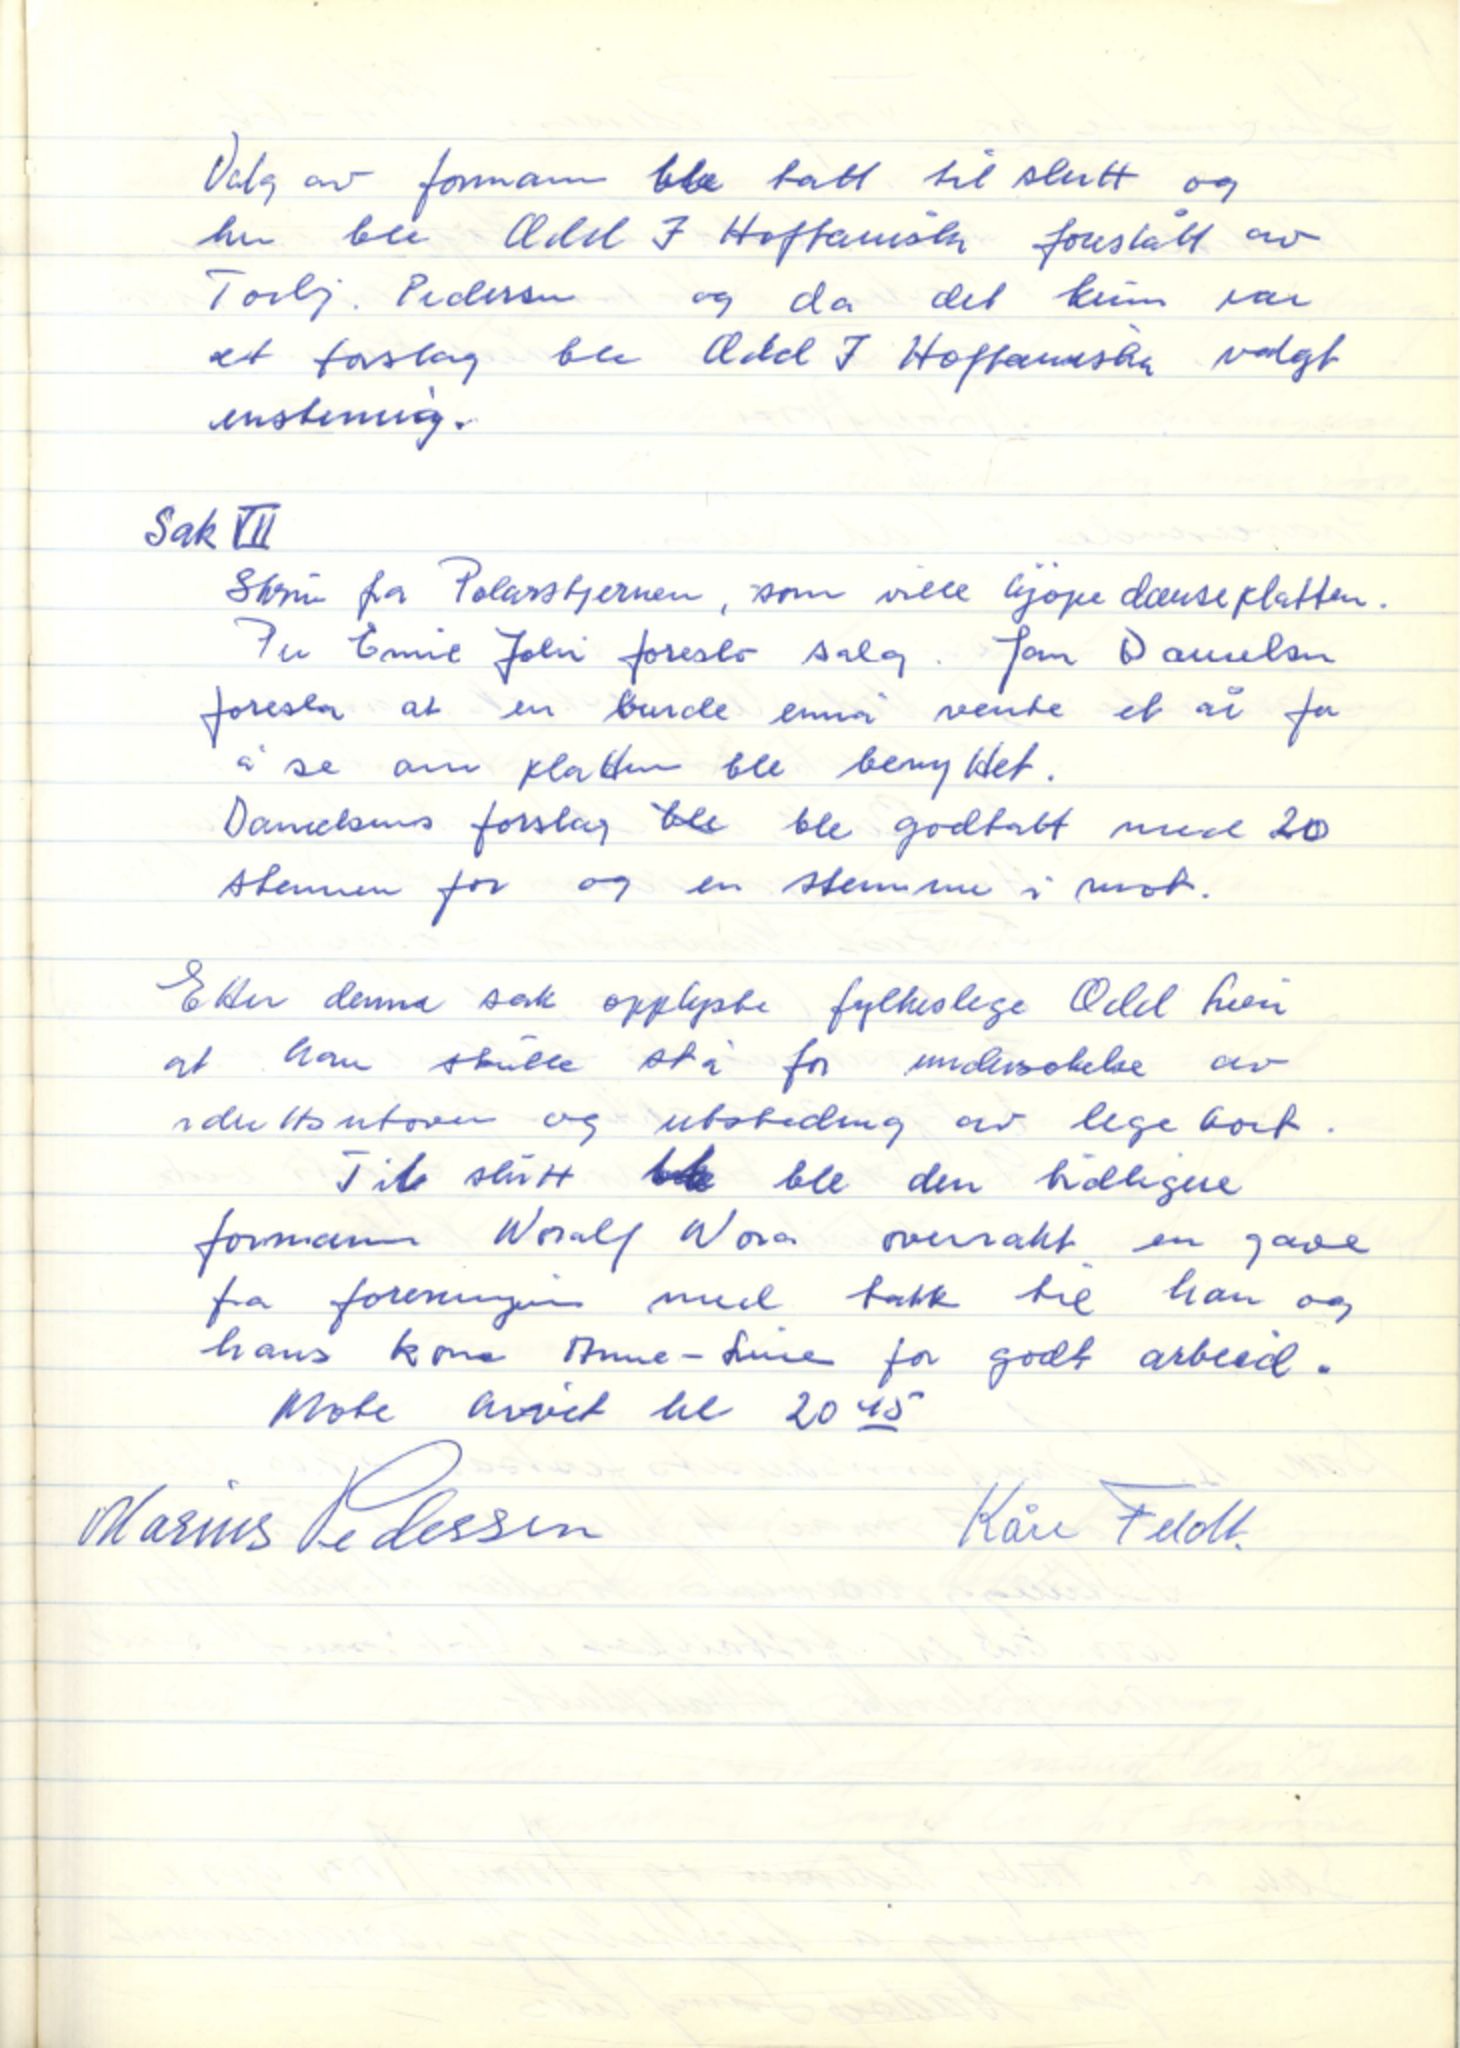 Valg av formann ble tatt til slutt og
her ble Odd I Hoftaniska foreslått av
Torbj. Pedersen og da det kun var
et forslag ble Odd I Hoftaniska valgt
enstemmig.
Sak VII
Skriv fra Polarstjernen, som ville kjöpe danseplatten.
Per Emil Johri foreslo salg. Jan Danielsen
foreslo at en burde ennå vente et år for
å se om platten ble benyttet.
Danielsens forslag ble ble godtatt med 20
stemmer for og en stemme i mot.
Etter denne sak opplyste fylkeslege Odd Lien
at han skulle stå for undersøkelse av
idrettsutøver og utsteding av lege kort.
Til slutt ble den tidligere
formann Noralf Nora overrakt en gave
fra foreningen med takk til han og
hans kone Anne-Lise for godt arbeid.
Møte hevet kl 20 45
Marius Pedersen Kåre Feldt.